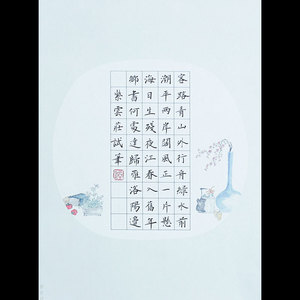 客路青山外行舟綠水前
潮平兩岸闊風正一片懸
海日生殘夜江春入舊年
鄉書何處達歸雁洛陽邊
紫雲莊試筆